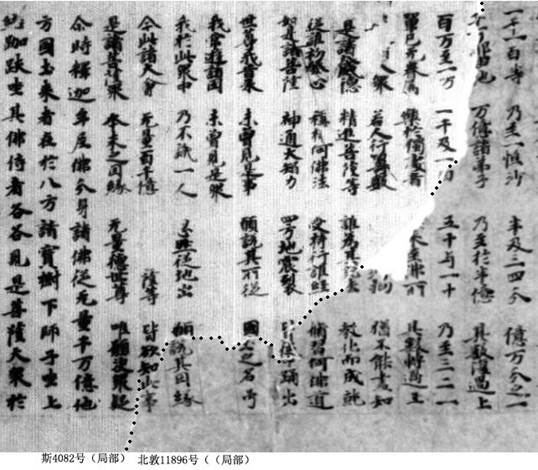 一千一百等 乃至一恒沙 半及三四分 億万分之一
由他 万億諸弟子 乃至於半億 其數復過上
百万至一万 一千及一百 五十与一十 乃至三二一
單己无眷屬 樂於獨處者 來至佛所 其數轉過上
衆 若人行籌數 劫 猶不能盡知
是諸大威德 精進菩薩等 誰為其說法 教化而成就
從誰初發心 稱揚何佛法 受持行誰經 脩習何佛道
如是諸菩薩 神通大智力 四方地震裂 皆從中踊出
世尊我昔來 未曾見是事 願說其所從 國土之名号
我常遊諸國 未曾見是衆
我於此衆中 乃不識一人 忽然從地出 願說其因緣
今此諸大會 无量百千億 薩等 皆欲知此事
是諸菩薩衆 本末之因緣 无量德世尊 唯願決衆疑
尒時釋迦牟尼佛分身諸佛從无量千万億他
方國土來者在於八方諸寶樹下師子坐上
結跏趺坐其佛侍者各各見是菩薩大衆於
斯4082号（局部） 北敦11896号（（局部）